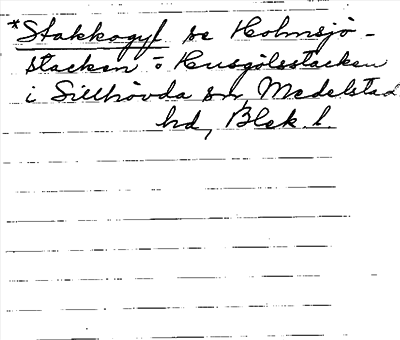 *Stakkagyl se Holmsjö-
stacken o Husgölsstacken
i Sillhövda sn, Medelstad
hd, Blek. l.